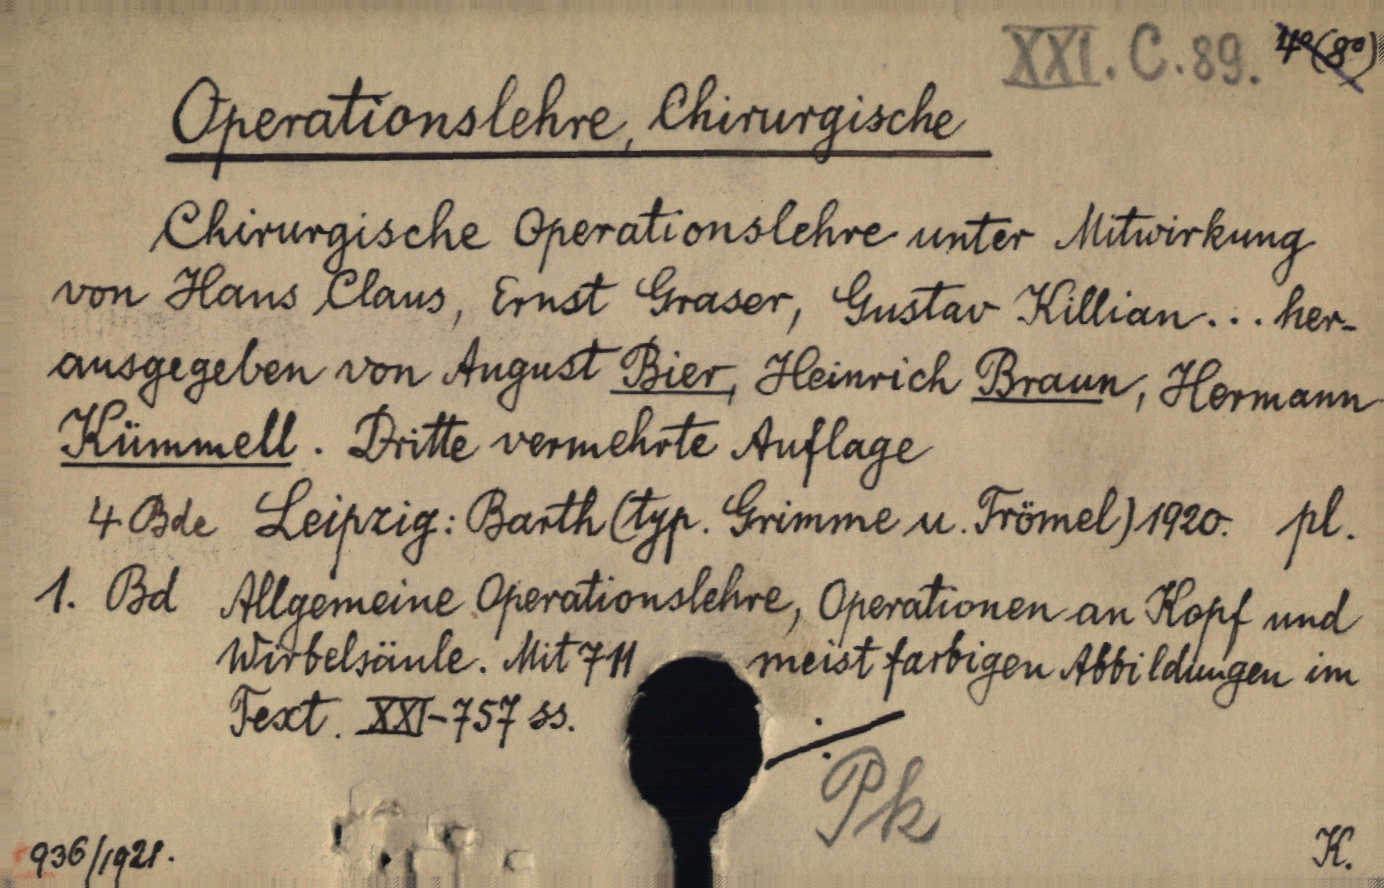 XXI. C. 89. 4º (8º)
Operationslehre, Chirurgische
Chirurgische Operationslehre unter Mitwirkung
von Hans Claus, Ernst Graser, Gustav Killian... her-
ausgegeben von August Bier, Heinrich Braun, Hermann
Kümmell. Dritte vermehrte Auflage
4 Bde Leipzig: Barth (typ. Grimme u. Trömel) 1920. pl.
1. Bd Allgemeine Operationslehre, Operationen an Kopf und
Wirbelsäule. Mit 711 meist farbigen Abbildungen im
Text. XXI-757 ss.
Pk
936/1921.
K.